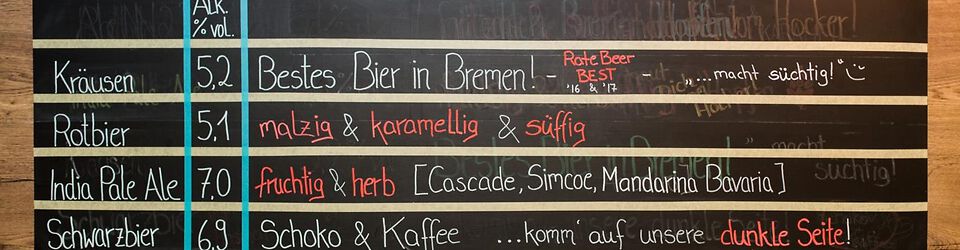 Alk.
% vol.
Kräusen 5,2 Bestes Bier in Bremen! - Rate Beer BEST '16 & '17 - „...macht süchtig!"
Rotbier 5,1 malzig & karamellig & süffig
India Pale Ale 7,0 fruchtig & herb [Cascade, Simcoe, Mandarina Bavaria]
Schwarzbier 6,9 Schoko & Kaffee ...komm' auf unsere dunkle Seite!